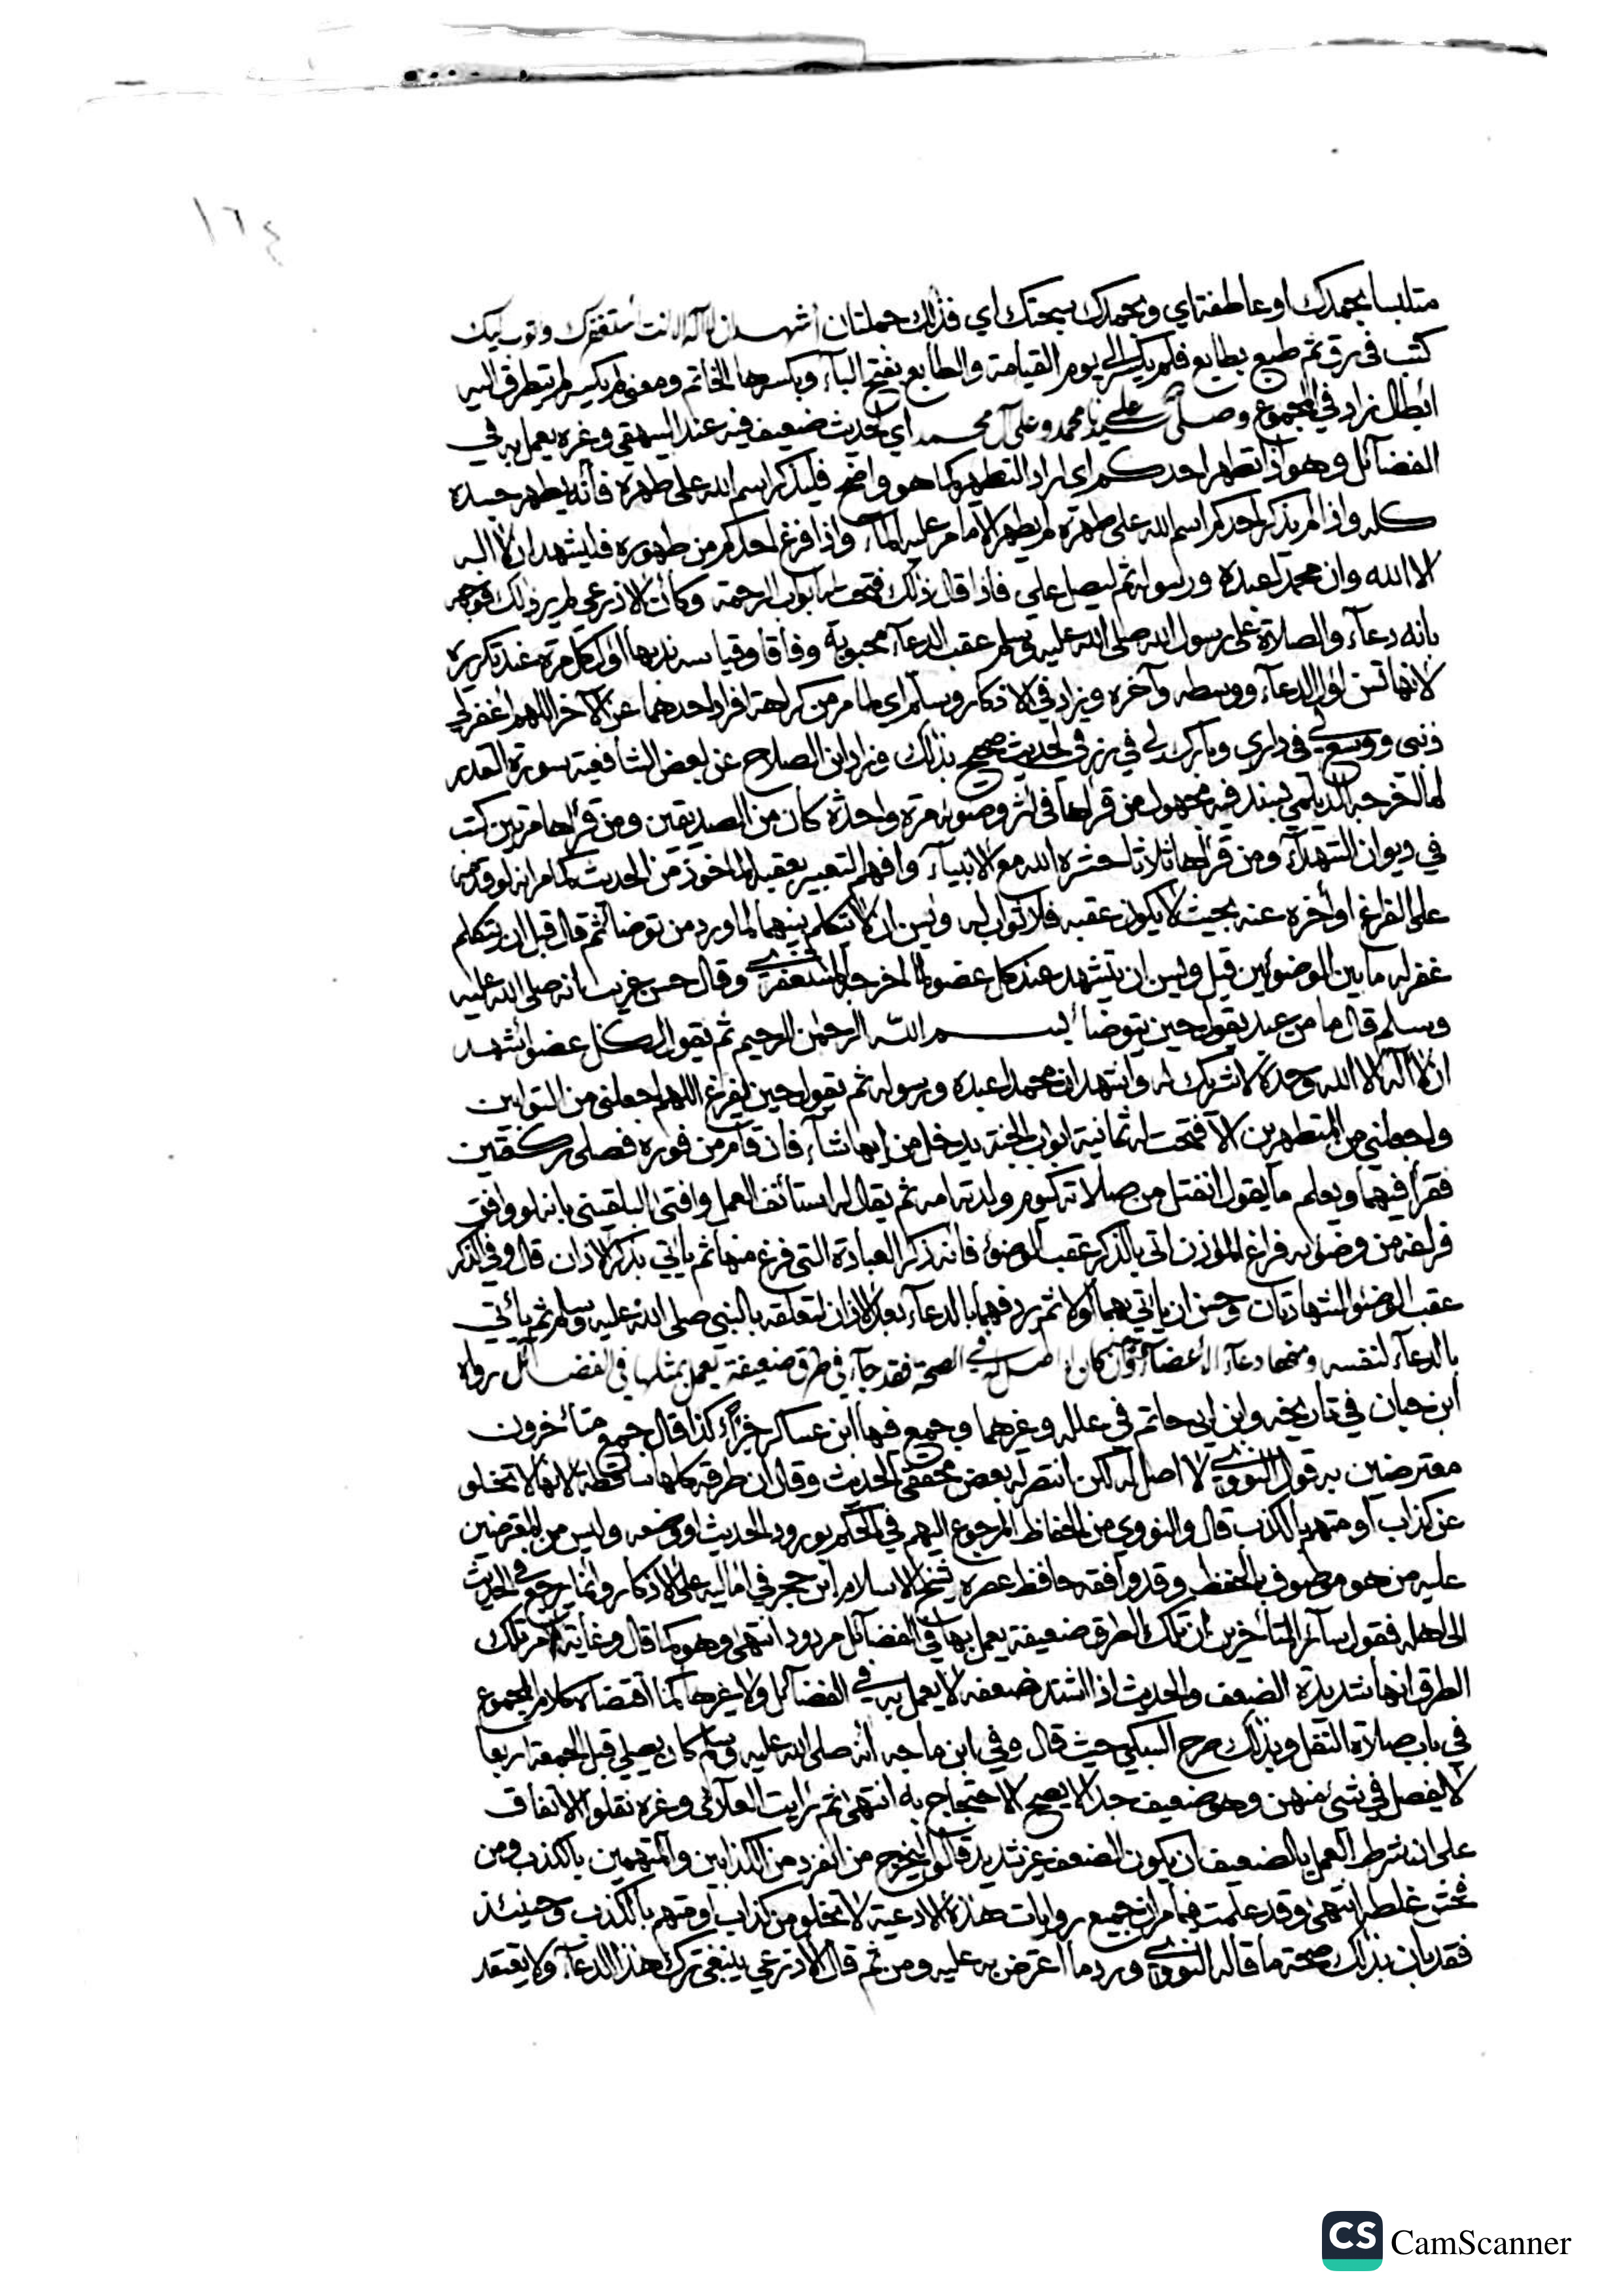 ١٦٤
متلبسا بحمدك او عاطفة اي وبحمدك سبحتك اي فذلك جملتان أشهد ان لا آله الا انت أستغفرك واتوب اليك
كتب في رق ثم طبع بطابع فلم يكسر الى يوم القيامة والطابع بفتح الباء وبكسرها الخاتم ومعنى لم يكسر لم يتطرق اليه
ابطال زاد في المجموع وصلى الله على سيدنا محمد وعلى آل محمد اي لحديث ضعيف فيه عند البيهقي وغيره يعمل به في
الفضائل وهو اذا تطهر احدكم اي اراد التطهر كما هو واضح فليذكر اسم الله على طهره فأنه يطهر جسده
كله واذا لم يذكر احدكم اسم الله على طهره لم يطهر الا ما مر عليه الماء واذا فرغ احدكم من طهوره فليشهد ان لا اله
الا الله وان محمدا عبده ورسوله ثم ليصل علي فاذا قال ذلك فتحت له ابواب الرحمة وكأن الاذرعي لم ير ذلك فوجهه
بانه دعاء والصلاة على رسول الله صلى الله عليه وسلم عقب الدعاء محبوبة وفاقا وقياسه ندبها اول كل مرة عند تكرره
لانها تسن اول الدعاء ووسطه وآخره ويزاد في الاذكار وسلم اي لما مر من كراهة افراد احدهما عن الآخر اللهم اغفر لي
ذنبي ووسع لي في داري وبارك لي في رزقي لحديث صحيح بذلك وزاد ابن الصلاح عن بعض الشافعية سورة القدر
لما اخرجه الديلمي بسند فيه مجهول من قرأها في اثر وضوئه مرة واحدة كان من الصديقين ومن قرأها مرتين كتب
في ديوان الشهداء ومن قرأها ثلاثا حشره الله مع الانبياء وافهم التعبير بعقبه المأخوذ من الحديث كما مر انه لو قدمه
على الفراغ او أخره عنه بحيث لا يكون عقبه فلا ثواب له ويسن ان لا يتكلم بينهما لما ورد من توضأ ثم قال قبل ان يتكلم
غفر له ما بين الوضوئين قيل ويسن ان يتشهد عند كل عضو لما اخرجه المستغفري وقال حسن غريب انه صلى الله عليه
وسلم قال ما من عبد يقول حين يتوضأ بسم الله الرحمن الرحيم ثم يقول لكل عضو أشهد
ان لا آله الا الله وحده لا شريك له واشهد ان محمدا عبده ورسوله ثم يقول حين يفرغ اللهم اجعلني من التوابين
واجعلني من المتطهرين الا فتحت له ثمانية ابواب الجنة يدخل من ايها شاء فان قام من فوره فصلى ركعتين
فقرأ فيهما ويعلم ما يقول انفتل من صلاته كيوم ولدته امه ثم يقال له استأنف العمل وافتى البلقيني بانه لو وافق
فراغه من وضوئه فراغ المؤذن اتى بالذكر عقب الوضوء فانه ذكر العبادة التي فرغ منها ثم يأتي بذكر الاذان قال وفي الذكر
عقب الوضوء الشهادتان وحسن ان يأتي بهما اولا ثم يردفهما بالدعاء بعد الاذان لتعلقه بالنبي صلى الله عليه وسلم ثم يأتي
بالدعاء لنفسه ومنها دعاء الأعضاء وان كان في الصحة فقد جاء في طرق ضعيفة يعمل بمثلها في الفضائل رواه
ابن حبان في تاريخه وابن ابي حاتم في علله وغيرهما وجمع فيها ابن عساكر جزأ كذا قال جمع متأخرون
معترضين به قول النووي لا اصل له لكن انتصر له بعض محققي الحديث وقال ان طرقه كلها ساقطة لانها لا تخلو
عن كذاب او متهم بالكذب قال والنووي من الحفاظ المرجوع اليهم في الحكم بورود الحديث او وضعه وليس من المعترضين
عليه من هو موصوف بالحفظ وقد وافقه حافظ عصره شيخ الاسلام ابن حجر في اماليه على الاذكار وانما يرجع في الحديث
الى اهله فقول سائر المتأخرين ان تلك الطرق ضعيفة يعمل بها في الفضائل مردود انتهى وهو كما قال وغاية امر تلك
الطرق انها شديدة الضعف والحديث اذا اشتد ضعفه لا يعمل به في الفضائل ولا غيرها كما اقتضاه كلام المجموع
في باب صلاة النفل وبذلك صرح السبكي حيث قال وفي ابن ماجه أنه صلى الله عليه وسلم كان يصلي قبل الجمعة اربعا
لا يفصل في شئ منهن وهو ضعيف جدا لا يصح الاحتجاج به انتهى ثم رايت العلائي وغيره نقلوا الاتفاق
على ان شرط العمل بالضعيف ان يكون الضعف غير شديد قالوا فيخرج من انفرد من الكذابين والمتهمين بالكذب ومن
فحش غلطه انتهى وقد علمت مما مر ان جميع روايات هذه الادعية لا تخلو من كذاب او متهم بالكذب وحينئذ
فقد بان بذلك صحة ما قاله النووي ورد ما اعترض به عليه ومن ثم قال الاذرعي ينبغي ترك هذا الدعاء ولا يعتقد
CS CamScanner